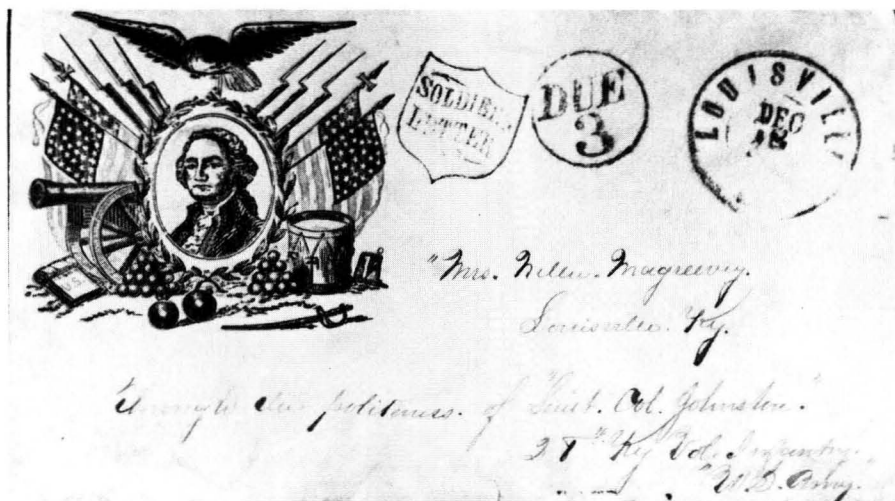 SOLDIER'S
LETTER
DUE
3
LOUISVILLE
DEC
18
U.S.
"Mrs. Magreevy.
Louisville. Ky.
Through the politeness. of "Lieut. Col. Johnston."
Ky Vol. Infantry.
Army.